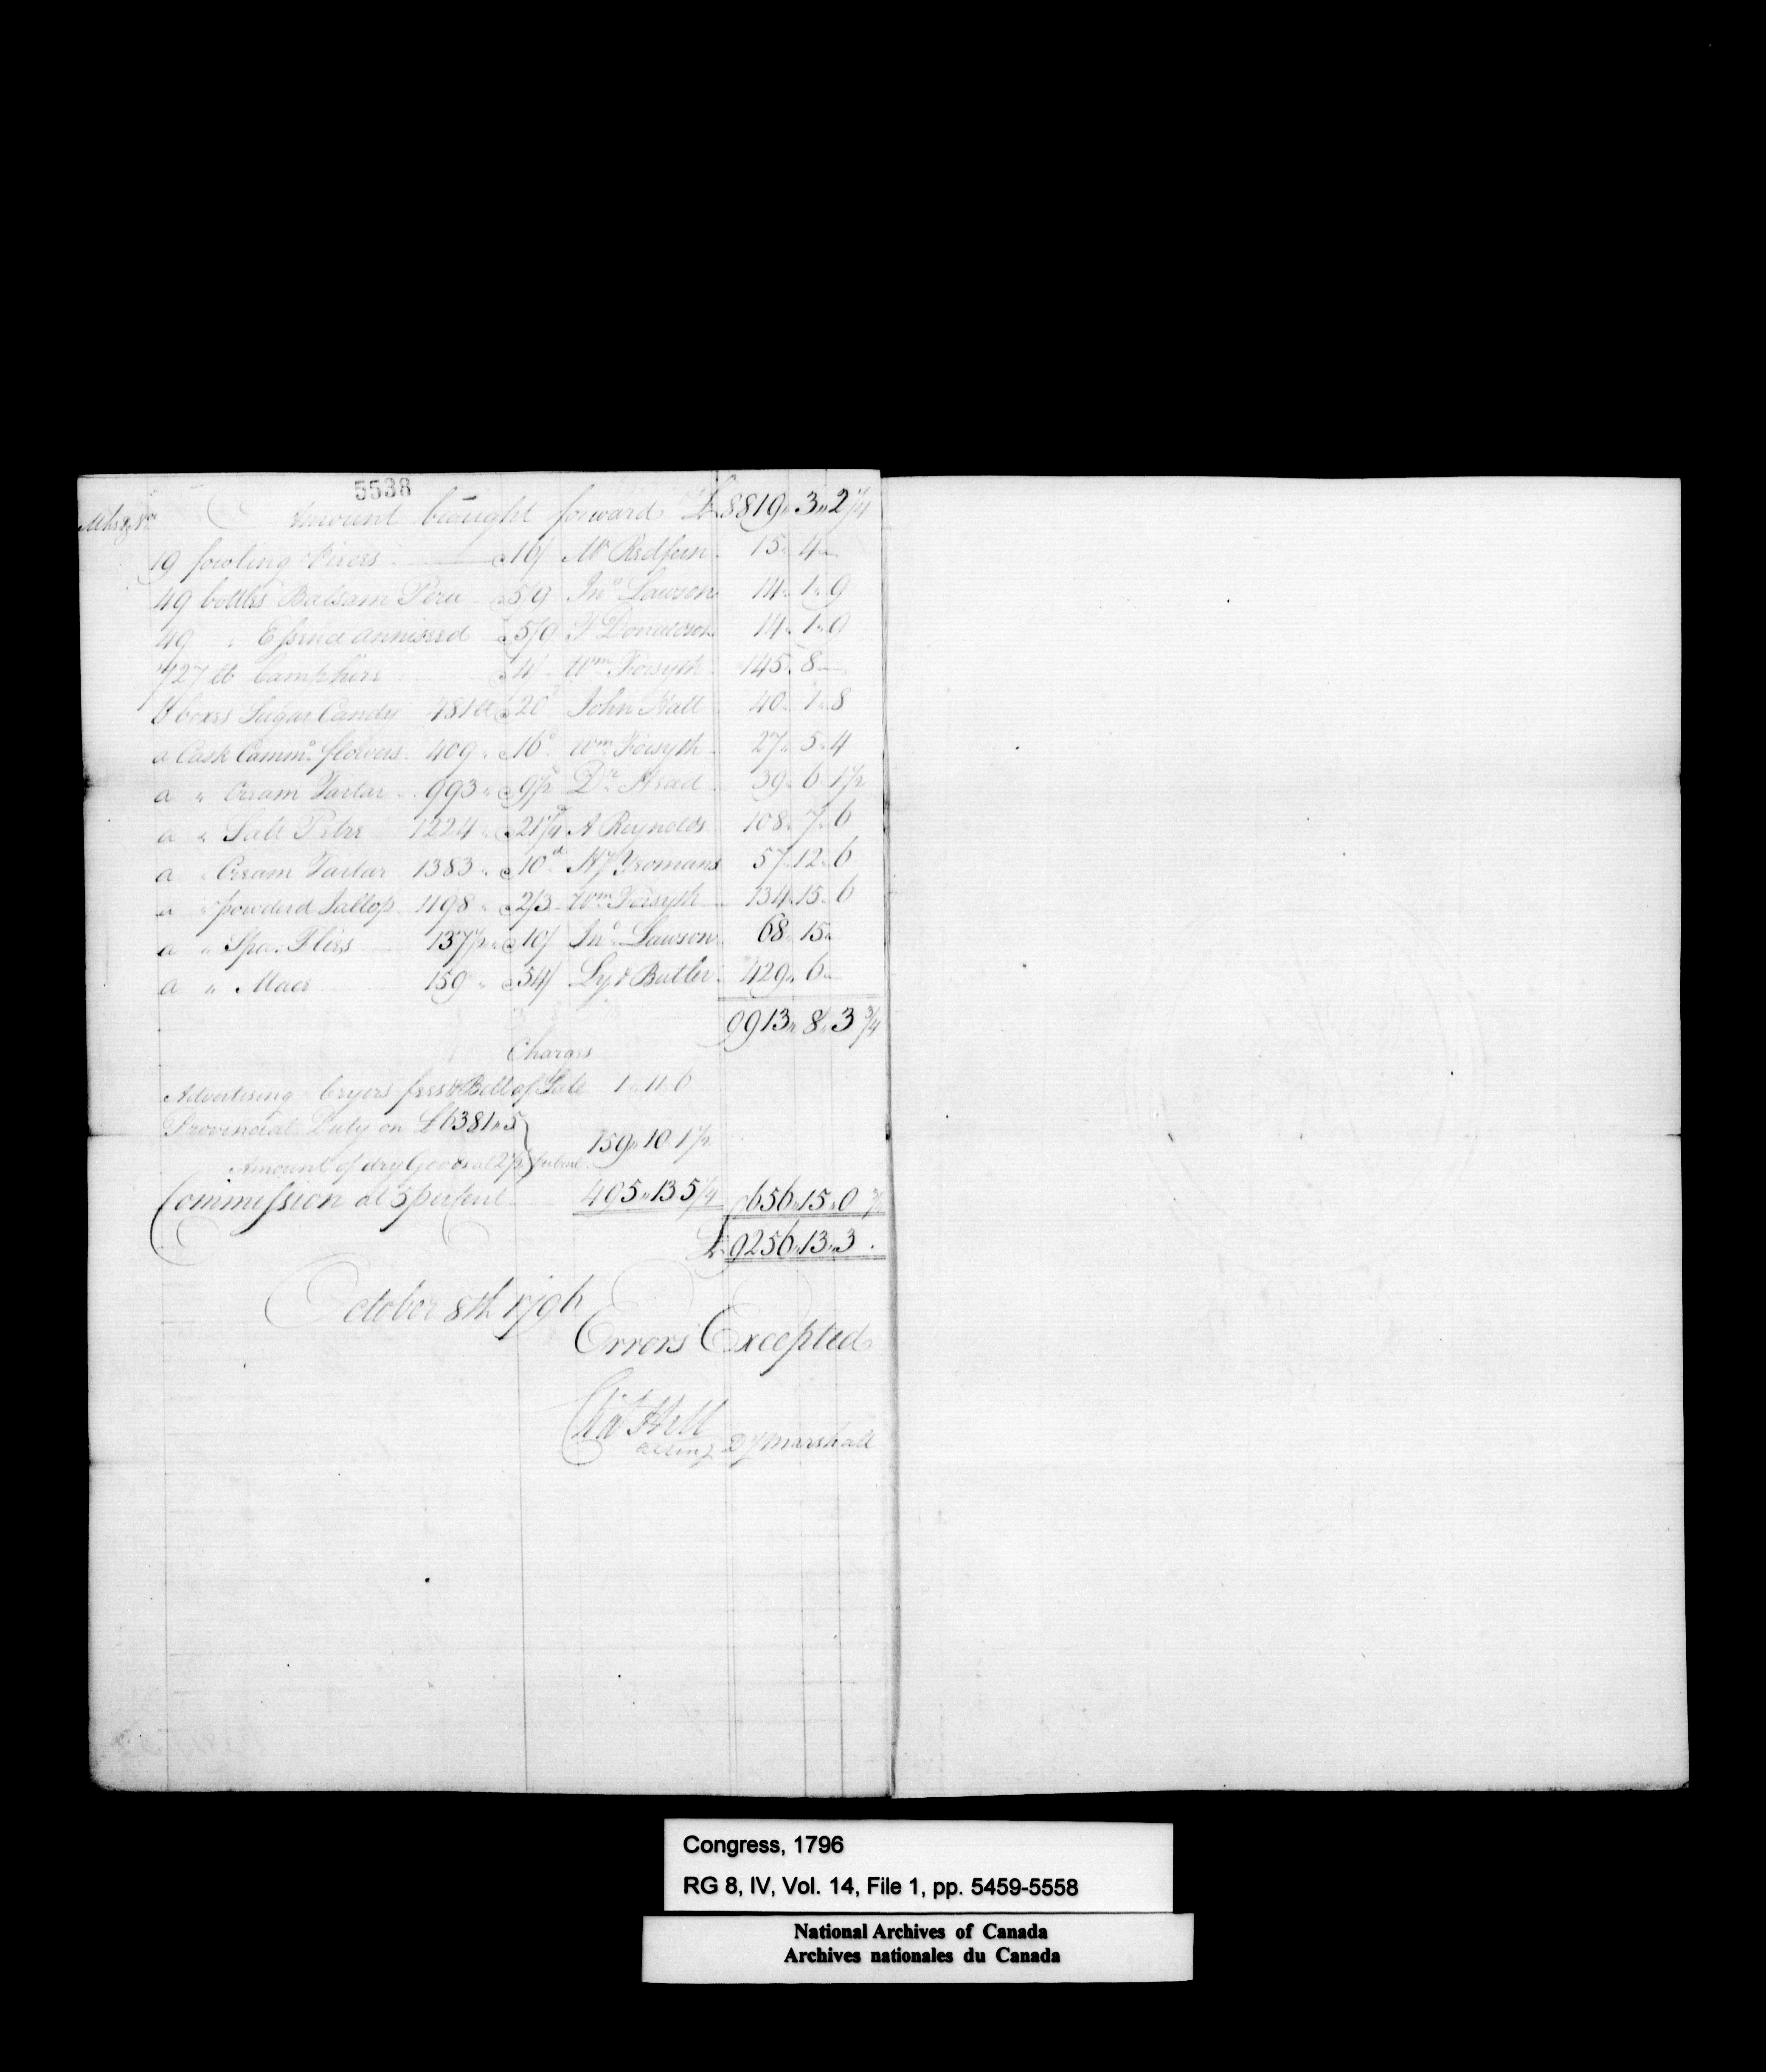 5538
Mks & Nos Amount brought forward £ 8819 " 3 " 2 1/4
19 fowling Pieces @ 16/ Mr Redfern 15 " 4 "
49 bottles Balsam Peru @ 5/9 Jno Lawson 14 " 1 " 9
49 " Essence Anniseed @ 5/9 T Donaldson 14 " 1 " 9
727 lb Camphire @ 4/ Wm Forsyth 145 " 8 "
boxes Sugar Candy 481 lb @ 20d John Hall 40 " 1 " 8
a Cask Cammo flowers 409 " @ 16d Wm Forsyth 27 " 5 " 4
a " Cream Tartar 993 " @ 9 1/2 Dr Head 39 " 6 " 1 1/2
a " Salt Petre 1224 " @ 21 1/4 A Reynolds 108 " 7 " 6
a " Cream Tartar 1383 " @ 10d Hy Yeomans 57 " 12 " 6
a " powderd Jallop 1198 " @ 2/3 Wm Forsyth 134 " 15 " 6
a " Spa: Flies 137 1/2 " @ 10/ Jno Lawson 68 " 15 "
a " Mace 159 " @ 54/ Ly & Butler 429 " 6 "
9913 " 8 " 3 3/4
Charges
Advertising Cryers fees & Bill of Sale 1 " 11 " 6
Provincial Duty on £6381 " 5
Amount of dry Goods at 2 1/2 159 " 10 " 1 1/2
Commission at 5 per Cent 495 " 13 " 5 1/4 656 " 15 " 0 3/4
£ 9256 " 13 " 3
October 8th 1796
Errors Excepted
Chas Hill
acting Dy Marshall
Congress, 1796
RG 8, IV, Vol. 14, File 1, pp. 5459-5558
National Archives of Canada
Archives nationales du Canada